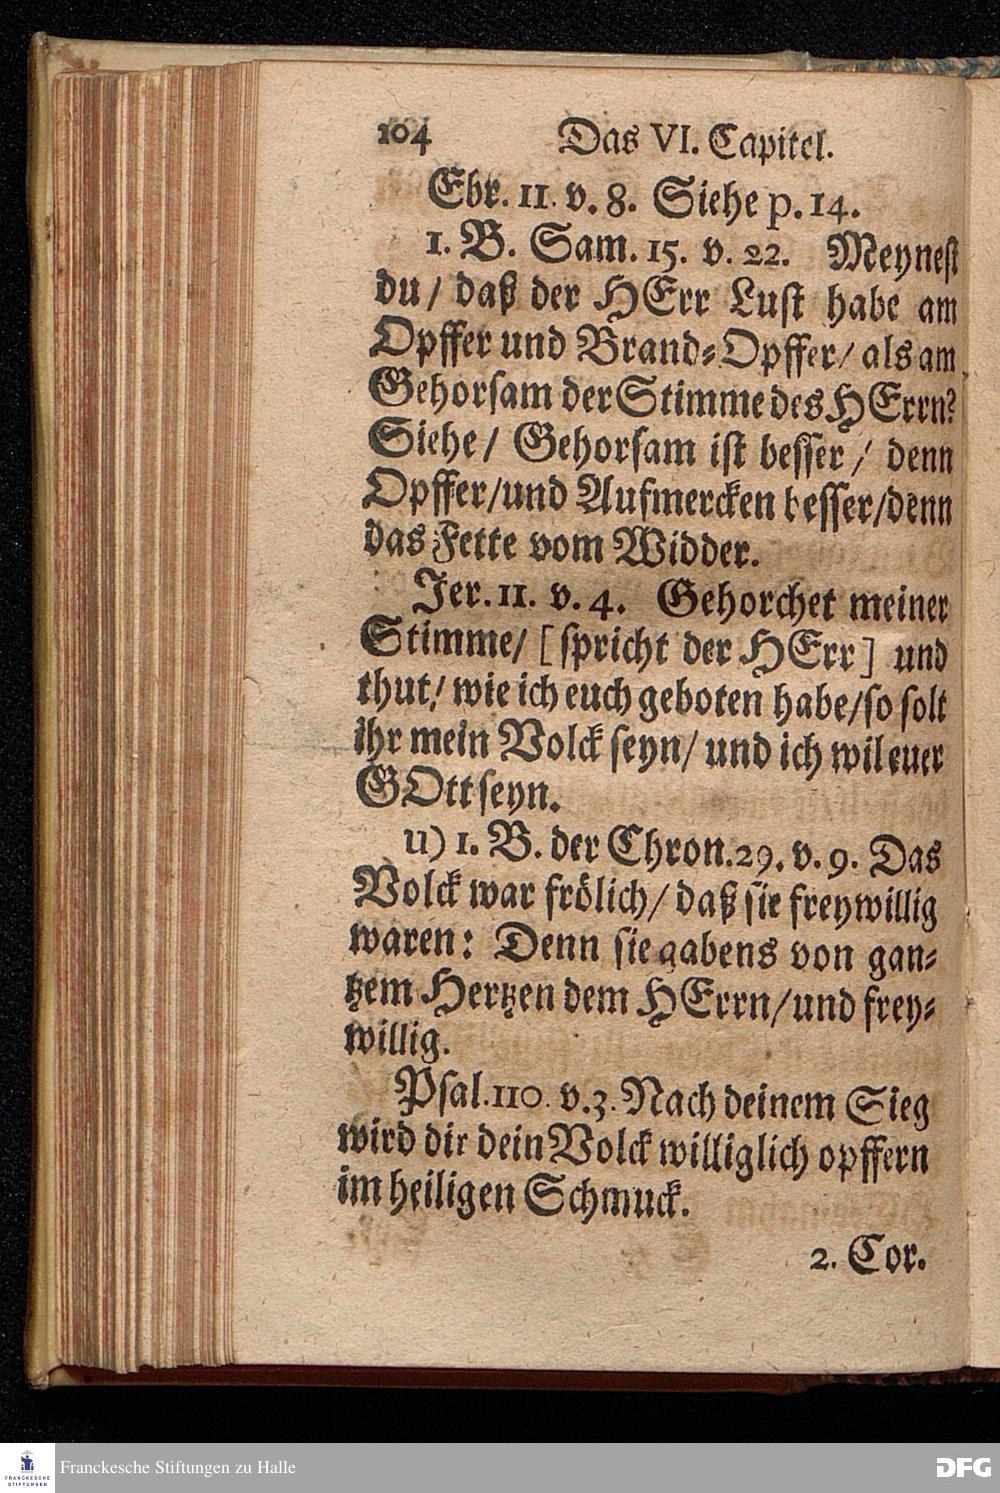 104 Das VI. Capitel.
Ebr. 11. v. 8. Siehe p. 14.
1. B. Sam. 15. v. 22. Meynest
du / daß der HErr Lust habe am
Opffer und Brand-Opffer / als am
Gehorsam der Stimme des HErrn?
Siehe / Gehorsam ist besser / denn
Opffer / und Aufmercken besser / denn
das Fette vom Widder.
Jer. 11. v. 4. Gehorchet meiner
Stimme / [spricht der HErr] und
thut / wie ich euch geboten habe / so solt
ihr mein Volck seyn / und ich wil euer
GOtt seyn.
u) 1. B. der Chron. 29. v. 9. Das
Volck war frölich / daß sie freywillig
waren: Denn sie gabens von gan-
tzem Hertzen dem HErrn / und frey-
willig.
Psal. 110. v. 3. Nach deinem Sieg
wird dir dein Volck williglich opffern
im heiligen Schmuck.
2. Cor.
FRANCKESCHE
STIFTUNGEN
Franckesche Stiftungen zu Halle
DFG